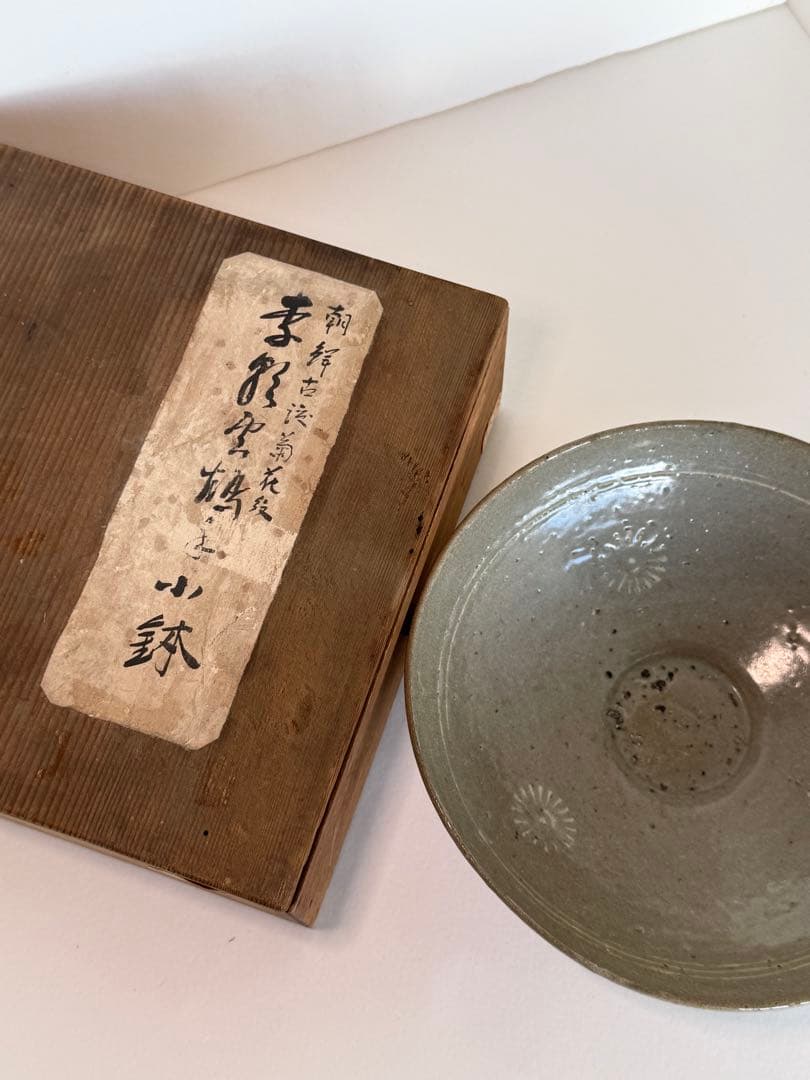 朝鮮古渡菊花紋
李朝雲鶴手小鉢